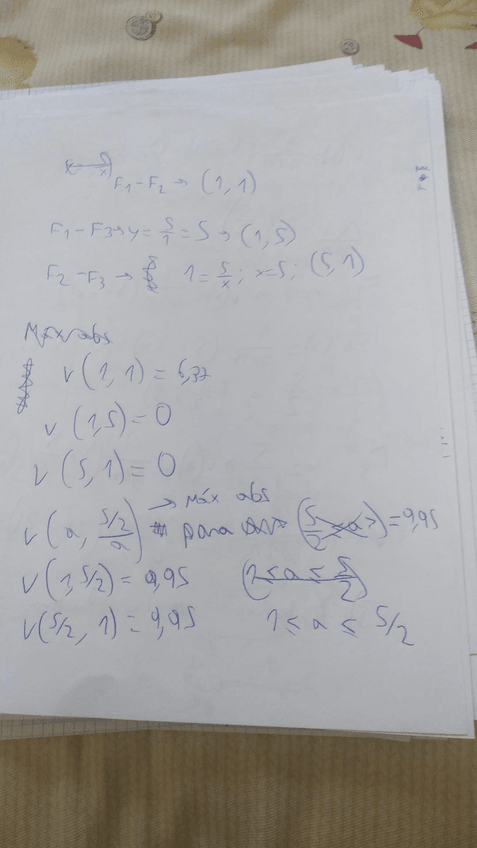 F1-F2 → (1,1)
F1-F3 → y = 5/1 = 5 → (1,5)
F2-F3 → 1 = 5/x ; x=5 ; (5,1)
Máx abs
v(1,1) = 6,37
v(1,5) = 0
v(5,1) = 0
→ Máx abs
v(a, 5/2/a) para = 9,95
v(1,5/2) = 9,95 (1 ≤ a ≤ 5/2)
v(5/2, 1) = 9,95 1 ≤ a ≤ 5/2